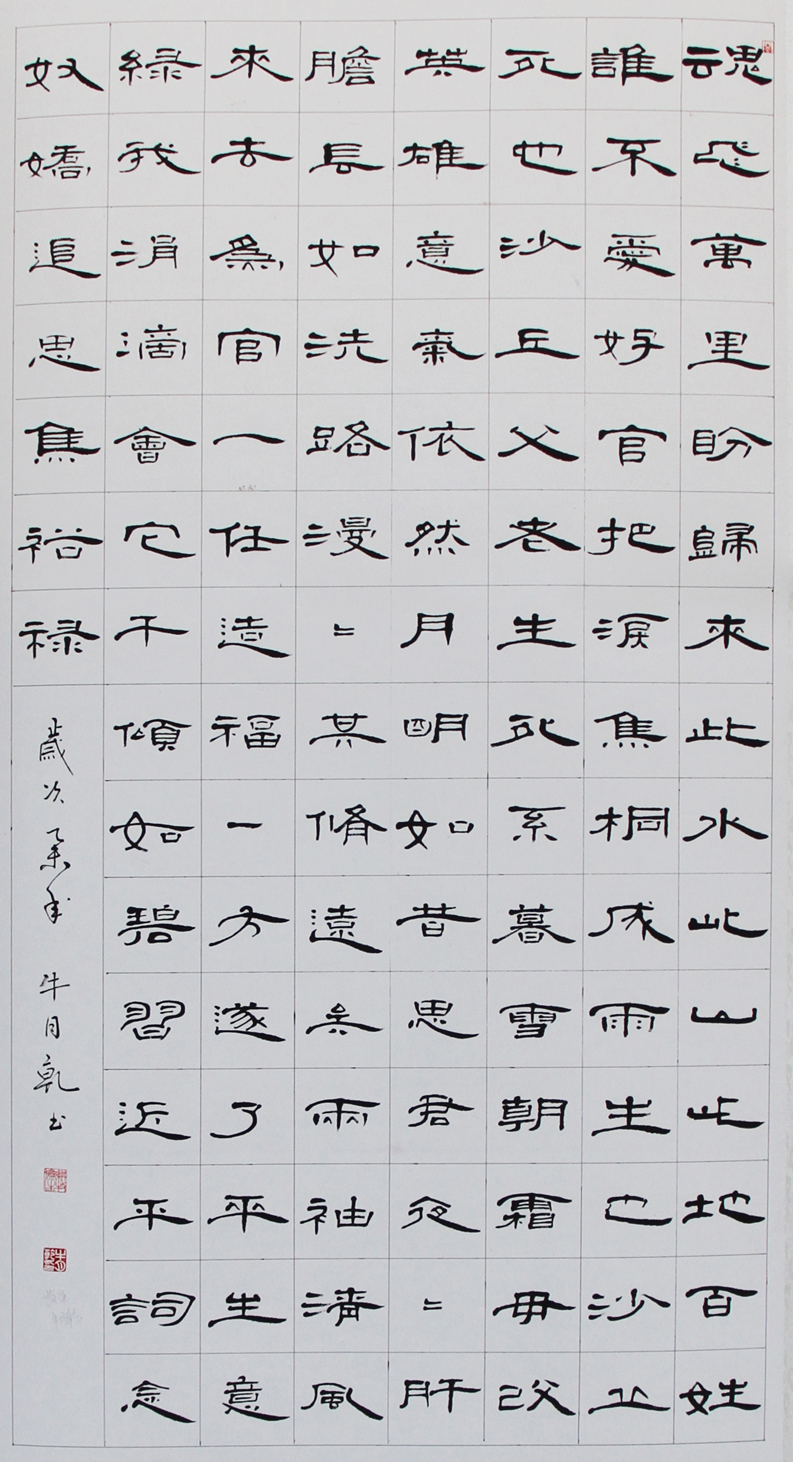 魂飛萬里盼歸來此水此山此地百姓
誰不愛好官把淚焦桐成雨生也沙丘
死也沙丘父老生死系暮雪朝霜毋改
英雄意氣依然月明如昔思君夜〻肝
膽長如洗路漫〻其脩遠矣兩袖清風
來去爲官一任造福一方遂了平生意
綠我涓滴會它千頃如碧習近平詞念
奴嬌追思焦裕禄
歲次乙未年 牛月乾书